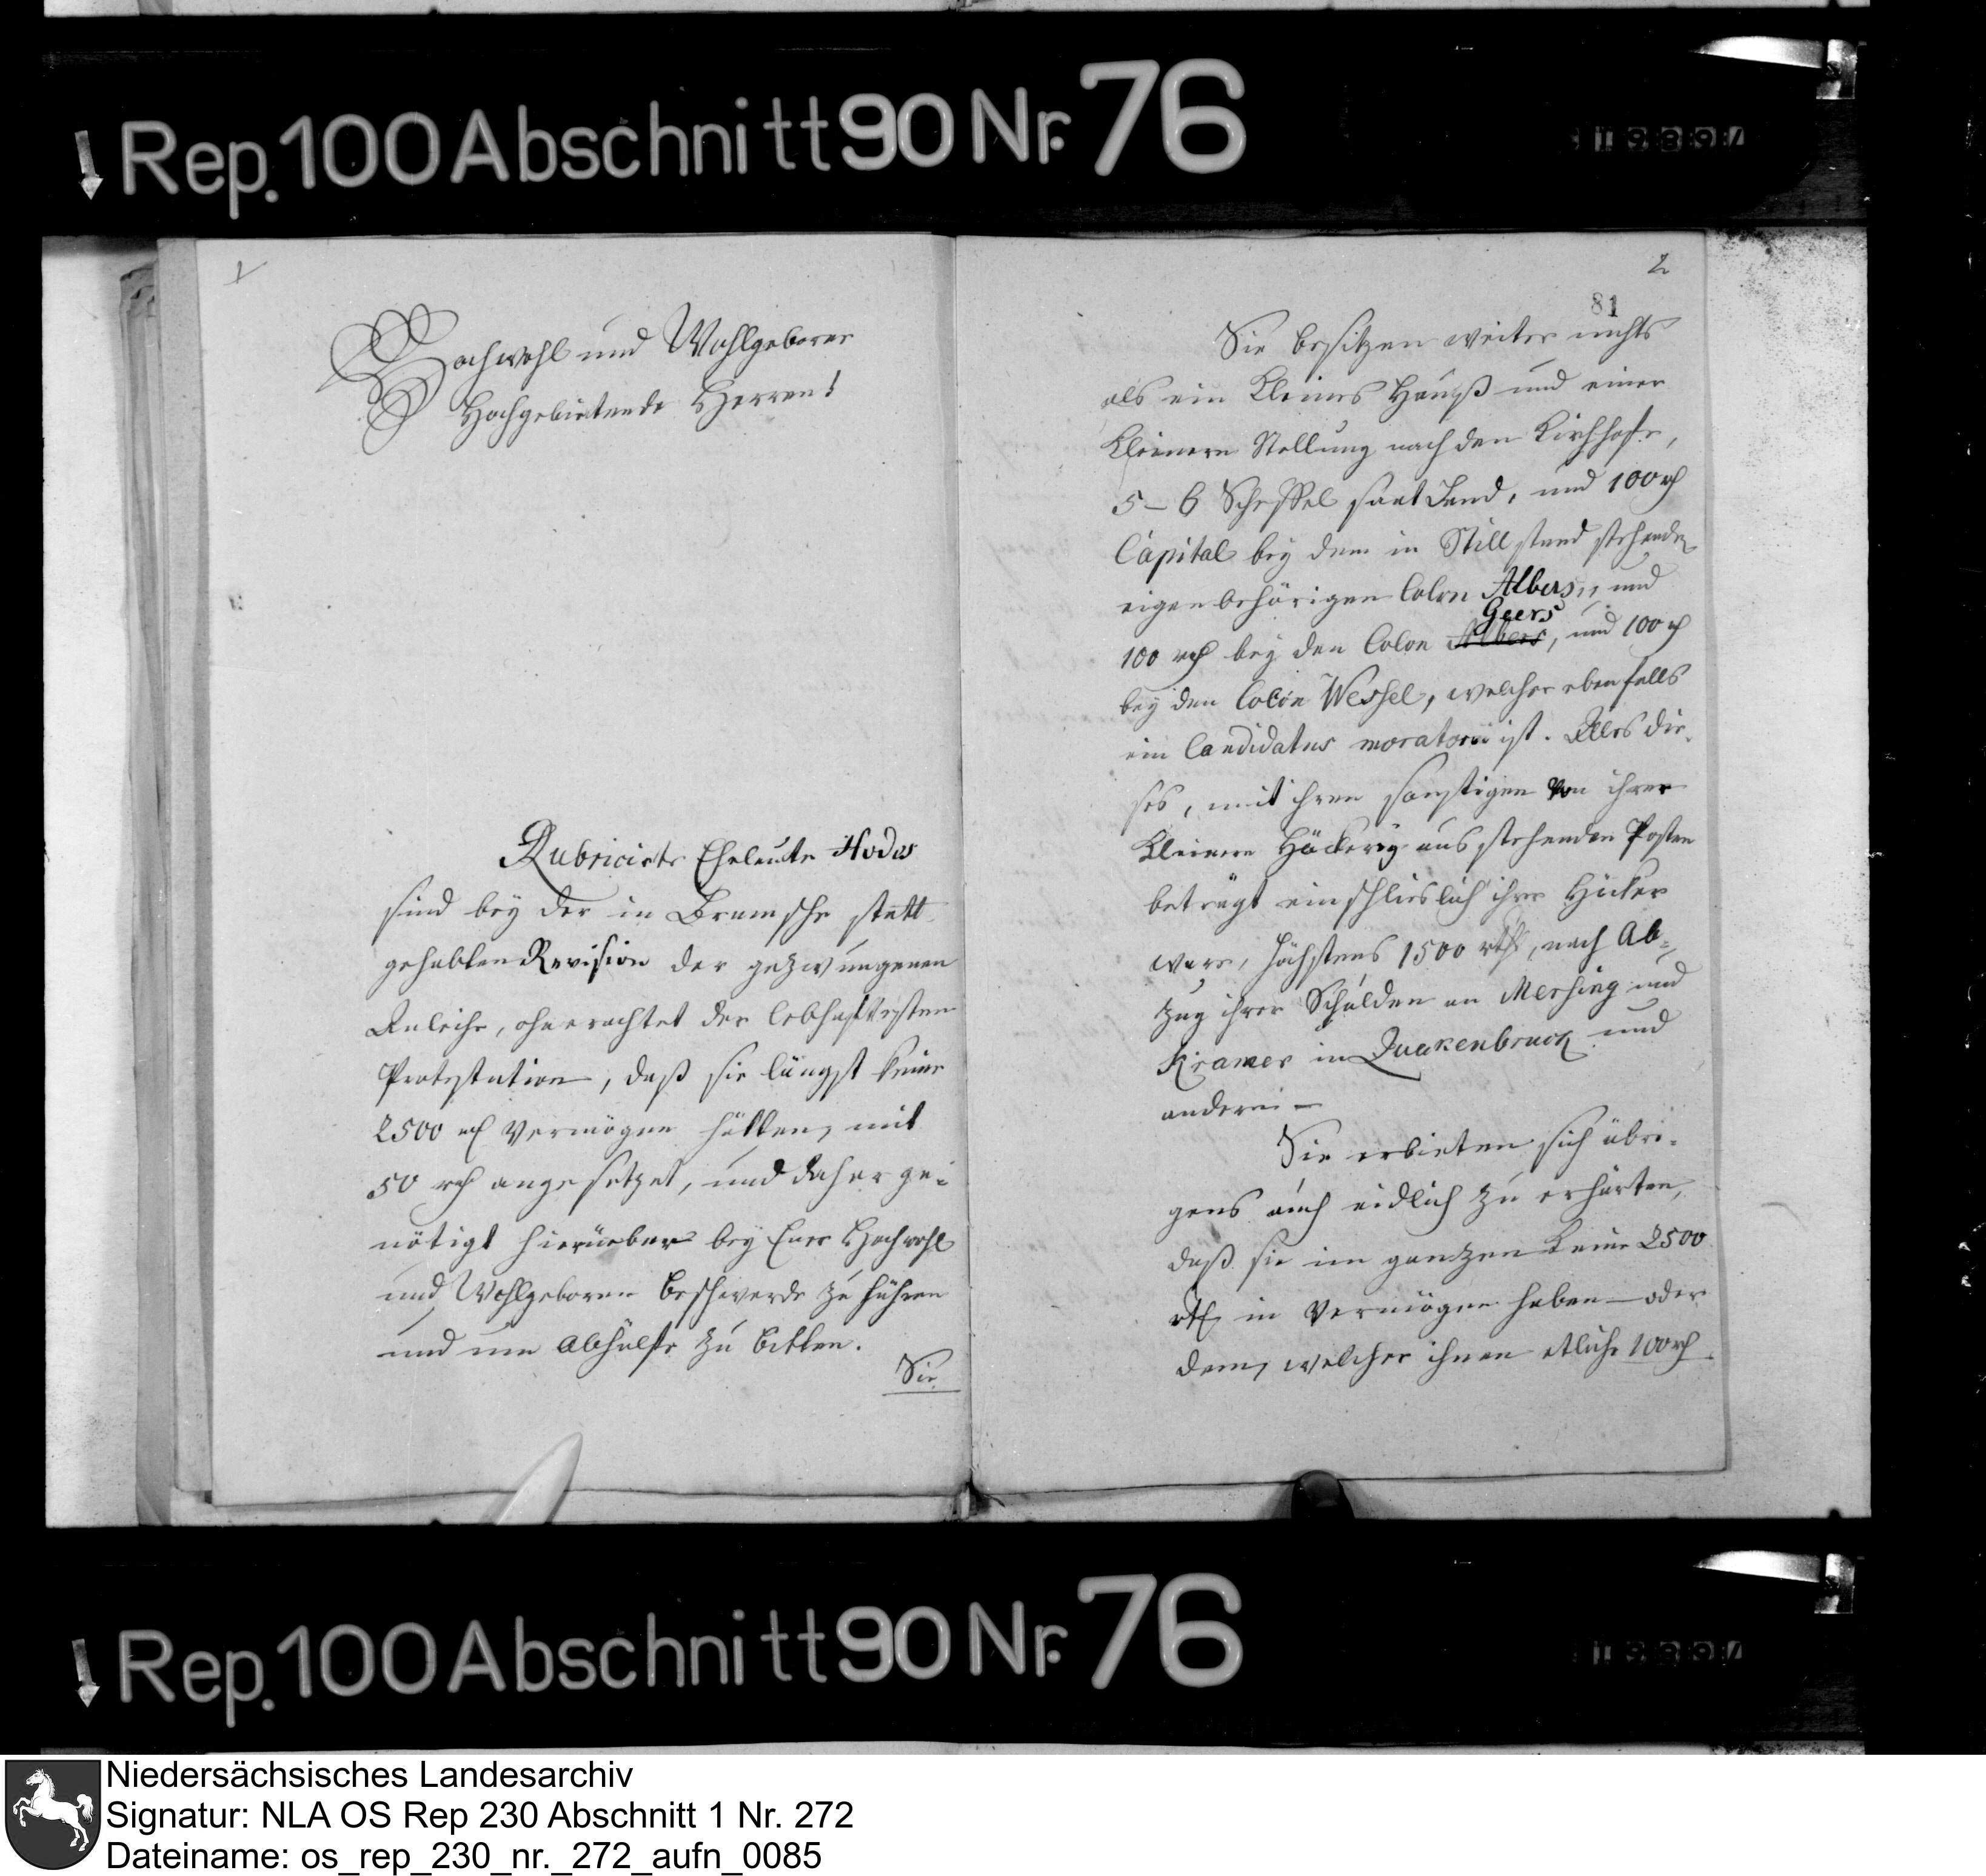 Rep. 100 Abschnitt 90 Nr. 76
1
Hochwohl und Wohlgeborne
Hochgebietende Herren!
Rubricirte Eheleute Hodes
sind bey der in Bramsche statt
gehabten Revision der gezwungenen
Anleihe, ohnerachtet der lebhaftesten
Protestation, daß sie längst keine
2500 rth Vermögen hätten, mit
50 rth angesetzet, und daher ge-
nötigt hierüeber bey Euer Hochwohl
und Wohlgeboren Beschwerde zu führen
und um Abhülfe zu bitten.
Sie
2
81
Sie besitzen weiter nichts
als ein kleines Hauß und einer
kleinern Stellung nach den Kirchhofe,
5 – 6 Scheffel saat Land, und 100 rth
Capital bey dem in Stillstand stehenden
eigenbehörigen Colon Albers, und
Geers
100 rth bey den Colon Albers, und 100 rth
bey den Colon Wessel, welcher ebenfalls
ein Candidatus moratorii ist. Alles die-
ses, mit ihren sonstigen von ihrer
kleinen Höckerey ausstehenden Posten
beträgt einschlieslich ihrer Höker
ware, höchstens 1500 rth, nach Ab-
zug ihrer Schulden an Mersing und
Kramer in Quakenbruck und
andern –
Sie erbieten sich übri-
gens auch eidlich zu erhärten,
daß sie im ganzen keine 2500
rth in Vermögen haben – oder
dem, welcher ihnen etliche 100 rth
Rep. 100 Abschnitt 90 Nr. 76
Niedersächsisches Landesarchiv
Signatur: NLA OS Rep 230 Abschnitt 1 Nr. 272
Dateiname: os_rep_230_nr._272_aufn_0085